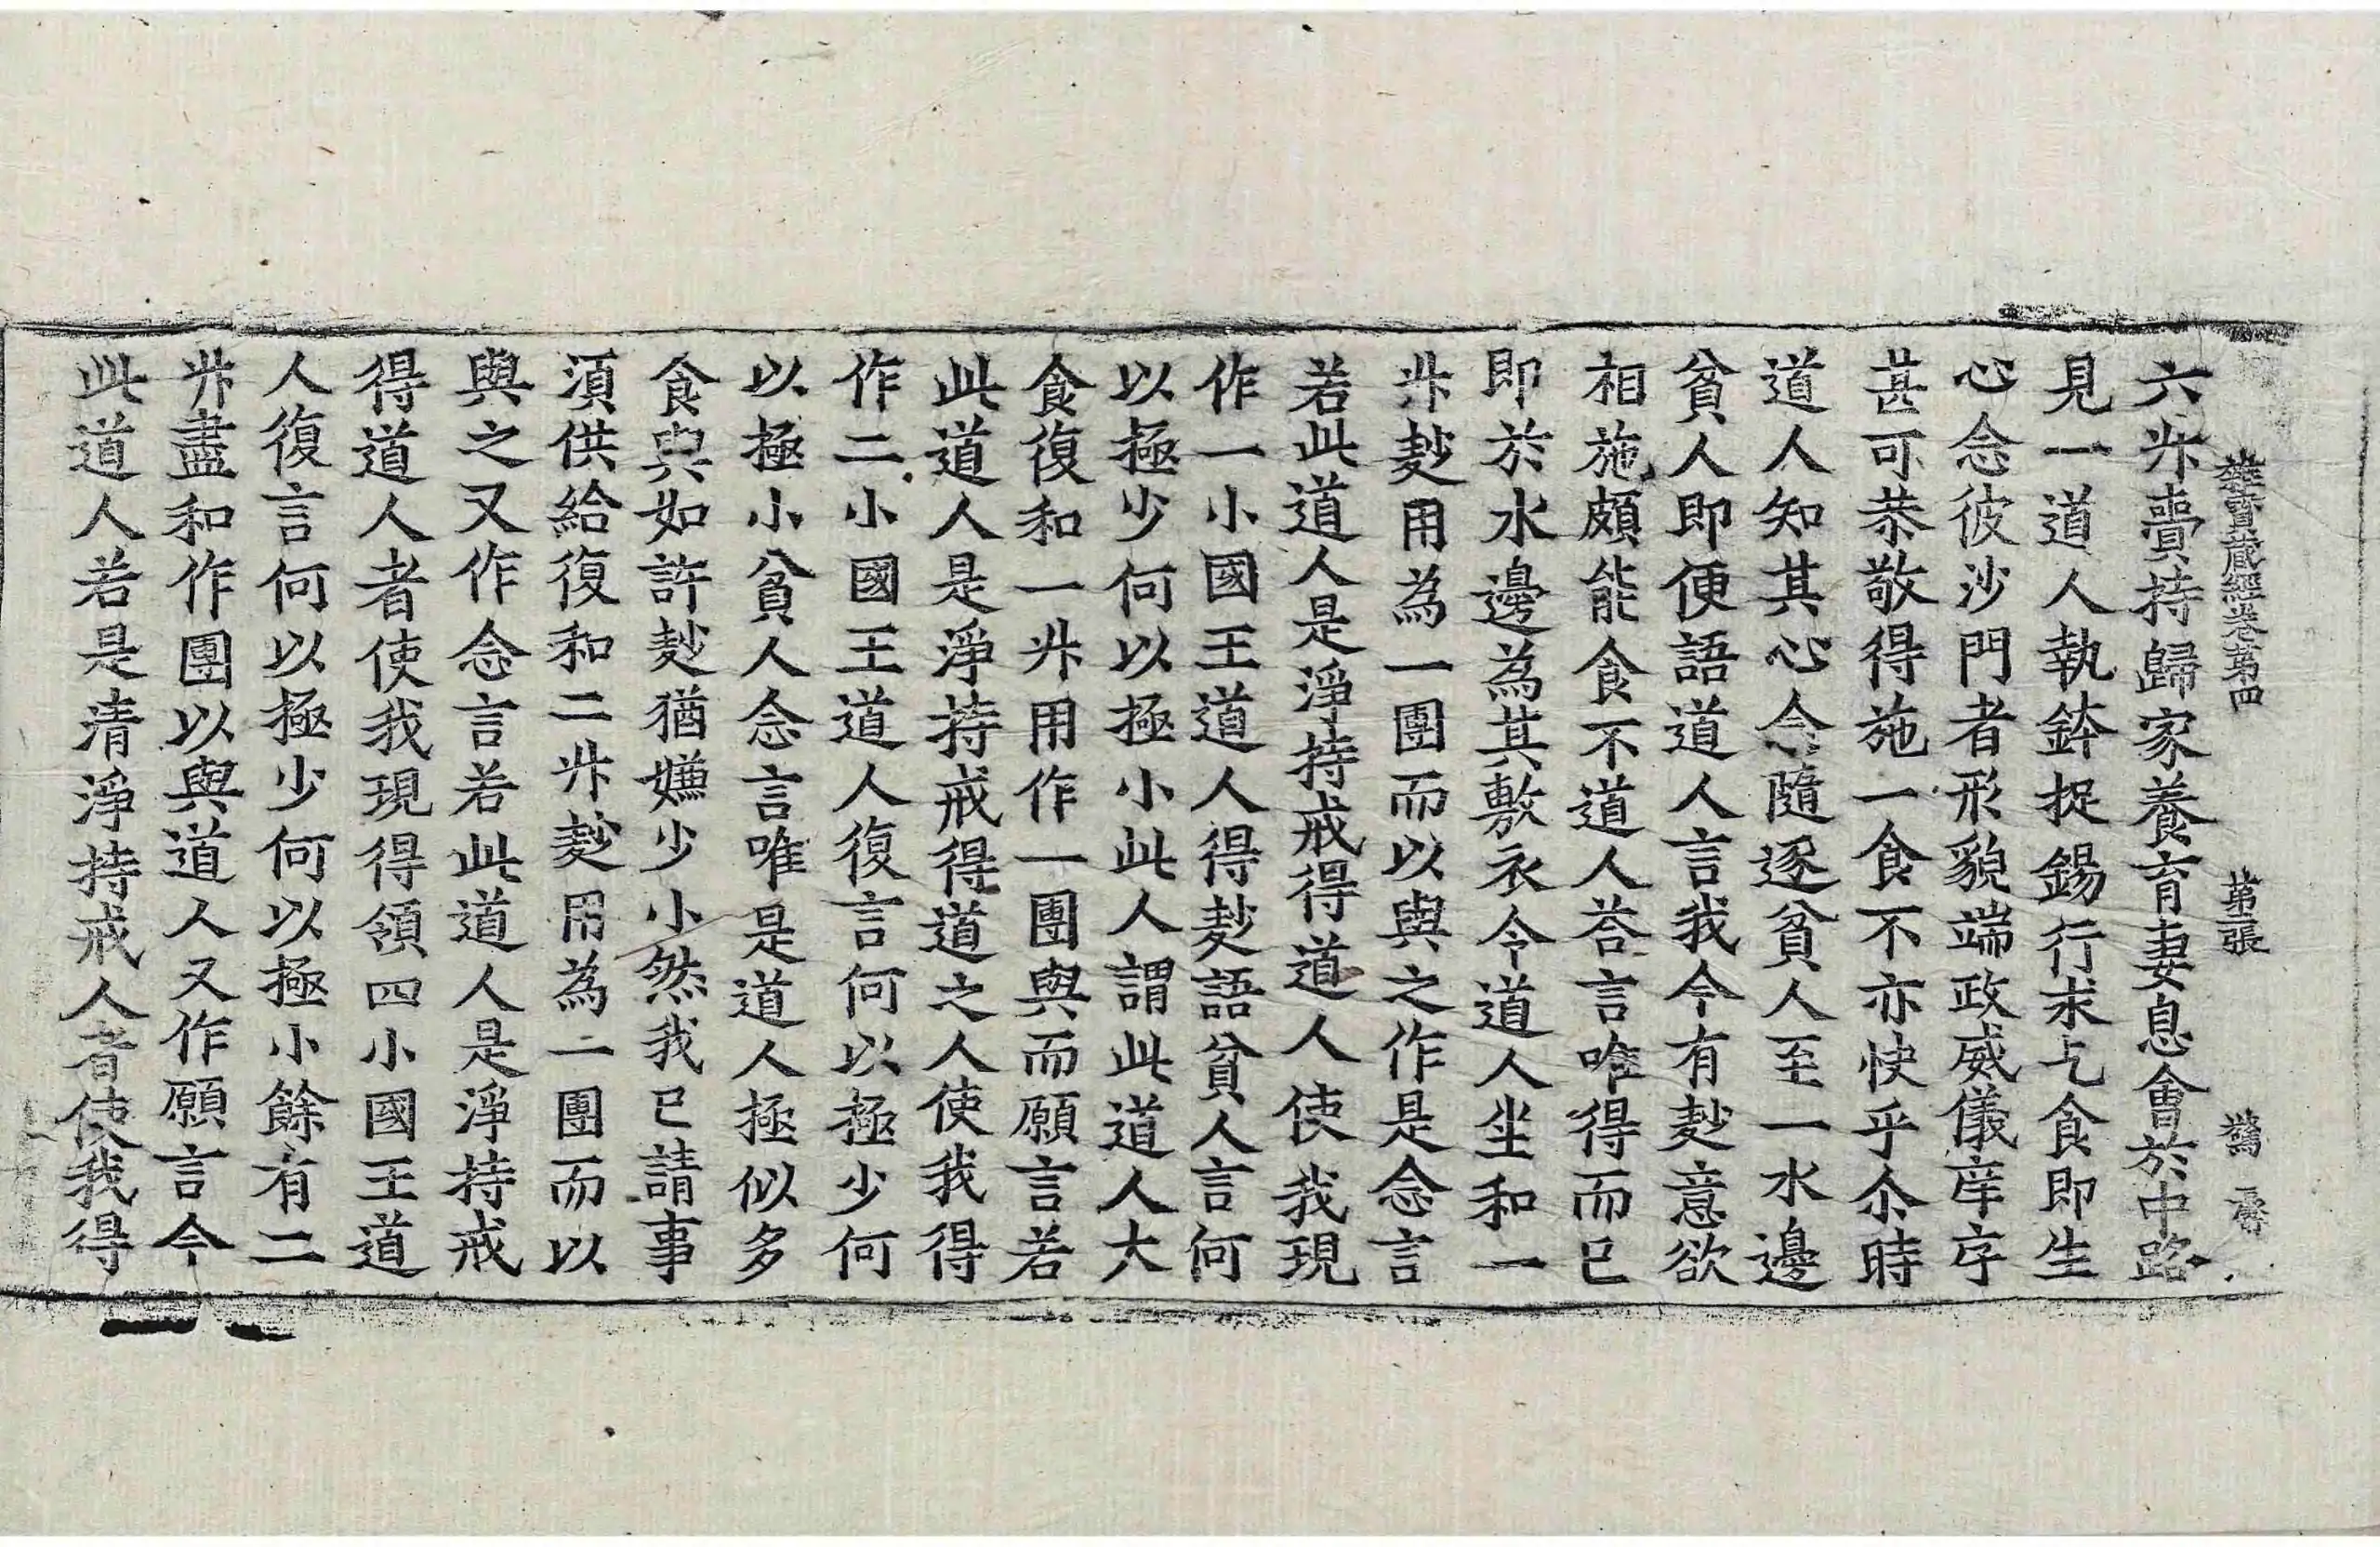 雜寶藏經卷第四 第張 驚
六升賣持歸家養育妻息會於中路
見一道人執鉢捉錫行求乞食即生
心念彼沙門者形貌端政威儀庠序
甚可恭敬得施一食不亦快乎尒時
道人知其心念隨逐貧人至一水邊
貧人即便語道人言我今有麨意欲
相施頗能食不道人荅言唯得而已
即於水邊為其敷衣令道人坐和一
升麨用為一團而以與之作是念言
若此道人是淨持戒得道人使我現
作一小國王道人得麨語貧人言何
以極少何以極小此人謂此道人大
食復和一升用作一團與而願言若
此道人是淨持戒得道之人使我得
作二小國王道人復言何以極少何
以極小貧人念言唯是道人極似多
食與如許麨猶嫌少小然我已請事
須供給復和二升麨用為一團而以
與之又作念言若此道人是淨持戒
得道人者使我現得領四小國王道
人復言何以極少何以極小餘有二
升盡和作團以與道人又作願言今
此道人若是清淨持戒人者使我得